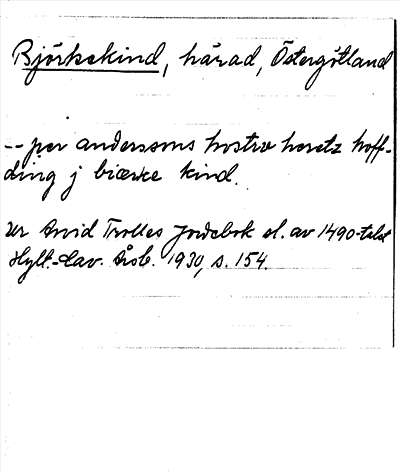 Björkekind, härad, Östergötland
-- per anderssons hostrv heretz hoff-
ding j biærke kind.
ur Arvid Trolles Jordebok sl. av 1490-talet
Hylt.-Cav. Årsb. 1930, s. 154.